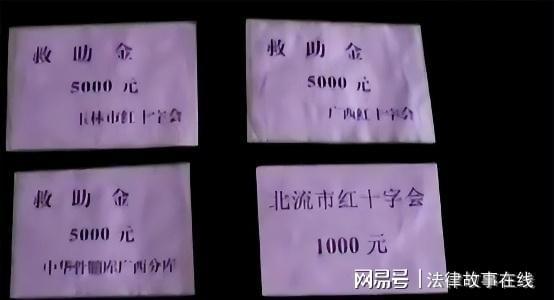 救助金
5000元
玉林市红十字会
救助金
5000元
广西红十字会
救助金
5000元
中华骨髓库广西分库
北流市红十字会
1000元
网易号 法律故事在线